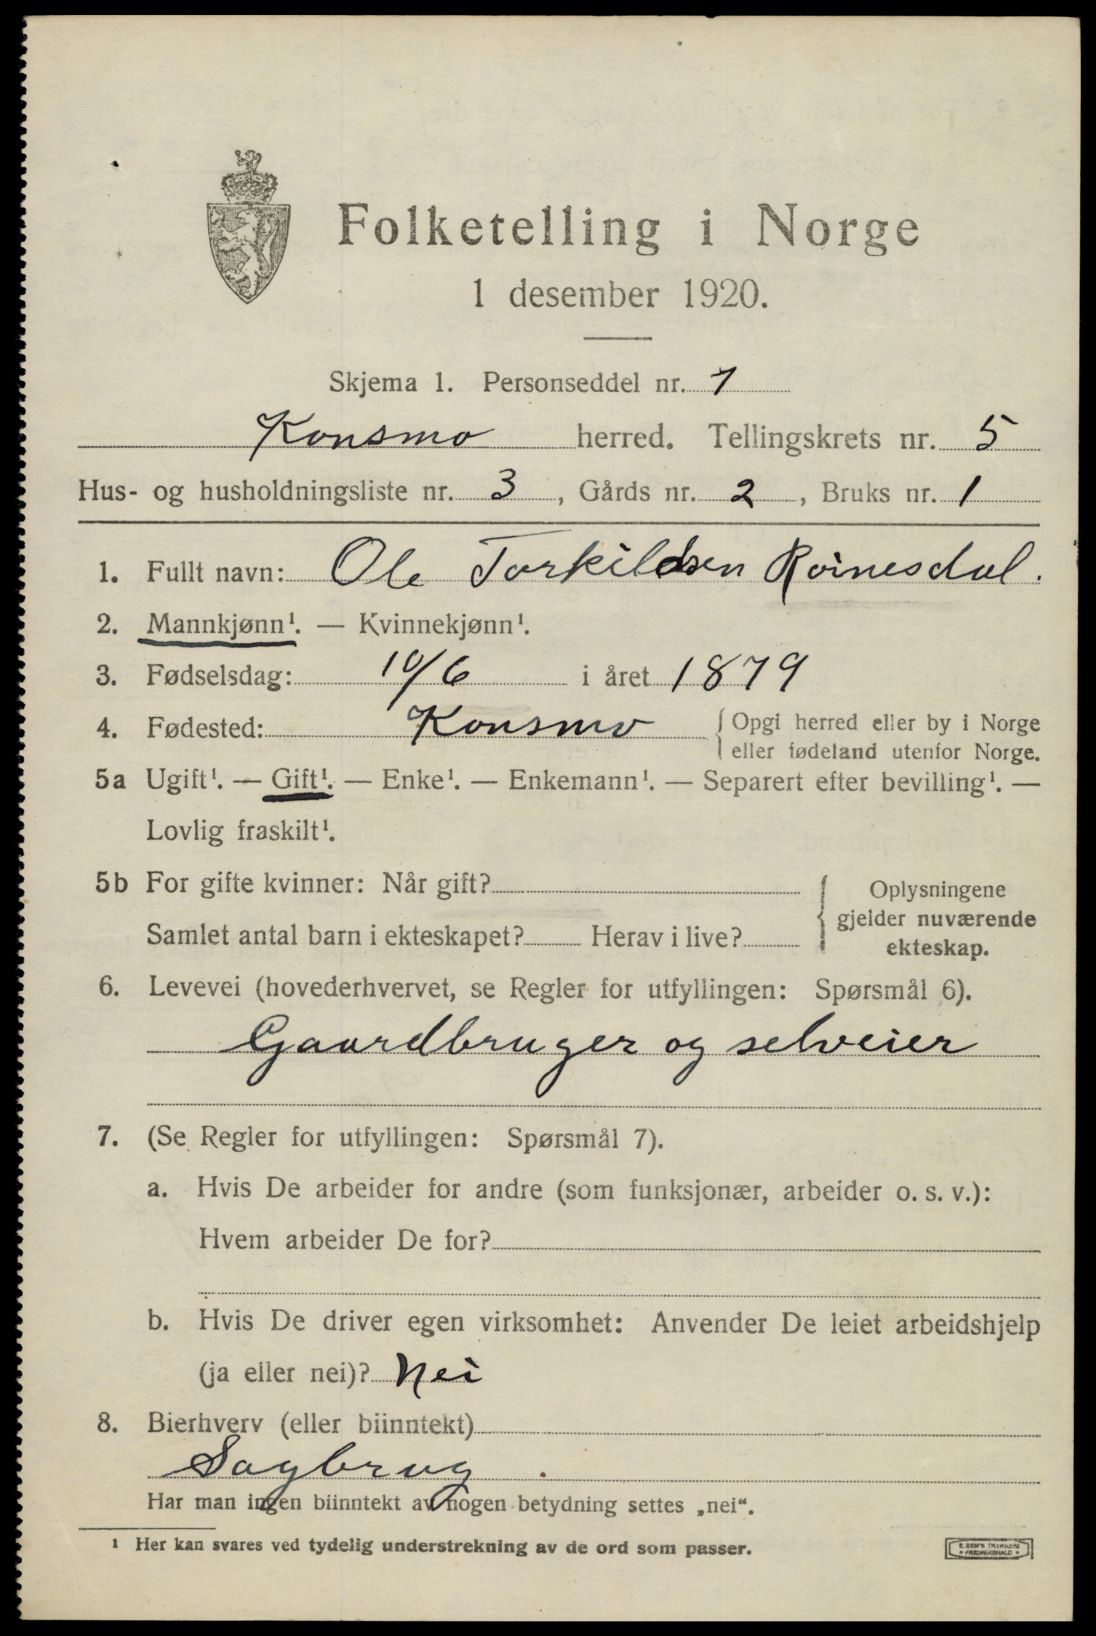 Folketelling i Norge
1 desember 1920.
Skjema 1. Personseddel nr. 1
Konsmo herred. Tellingskrets nr. 5
Hus- og husholdningsliste nr. 3, Gårds nr. 2, Bruks nr. 1
1. Fullt navn: Ole Torkildsen Roinesdal.
2. Mannkjønn¹. — Kvinnekjønn¹.
3. Fødselsdag: 10/6 i året 1879
4. Fødested: Konsmo { Opgi herred eller by i Norge
eller fødeland utenfor Norge.
5a Ugift¹. — Gift¹. — Enke¹. — Enkemann¹. — Separert efter bevilling¹. —
Lovlig fraskilt¹.
5b For gifte kvinner: Når gift?
Samlet antal barn i ekteskapet? Herav i live?
{ Oplysningene
gjelder nuværende
ekteskap.
6. Levevei (hovederhvervet, se Regler for utfyllingen: Spørsmål 6).
Gaardbruger og selveier
7. (Se Regler for utfyllingen: Spørsmål 7).
a. Hvis De arbeider for andre (som funksjonær, arbeider o. s. v.):
Hvem arbeider De for?
b. Hvis De driver egen virksomhet: Anvender De leiet arbeidshjelp
(ja eller nei)? Nei
8. Bierhverv (eller biinntekt)
Sagbrug.
Har man ingen biinntekt av nogen betydning settes „nei“.
¹ Her kan svares ved tydelig understrekning av de ord som passer.